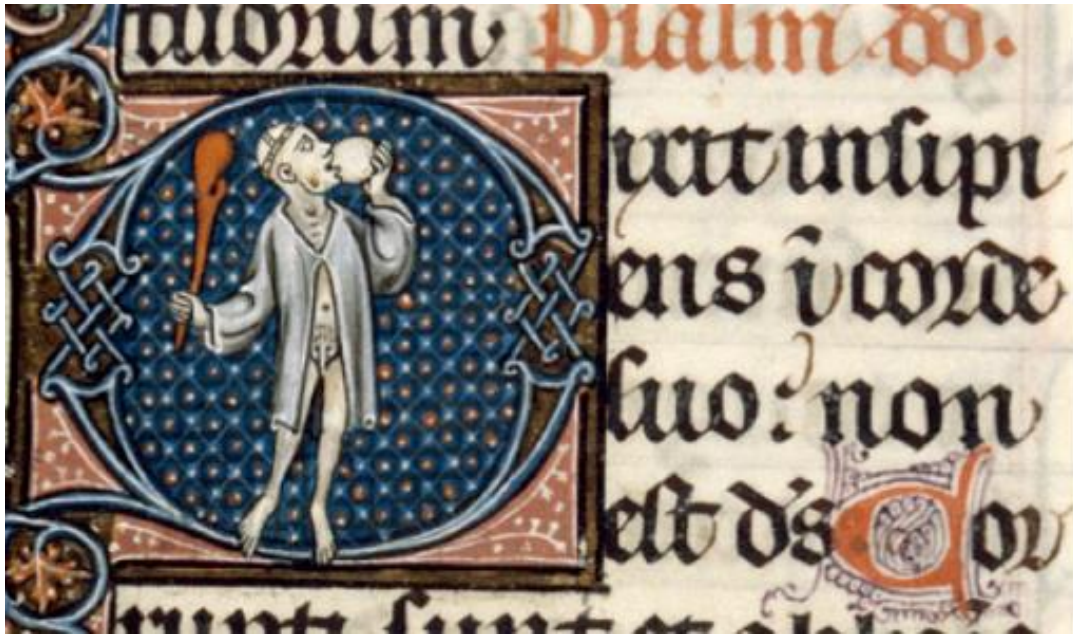 tuorum. psalm dd.
ixit insipi
ens ī corde
suo: non
est d's Cor
rupti sunt et